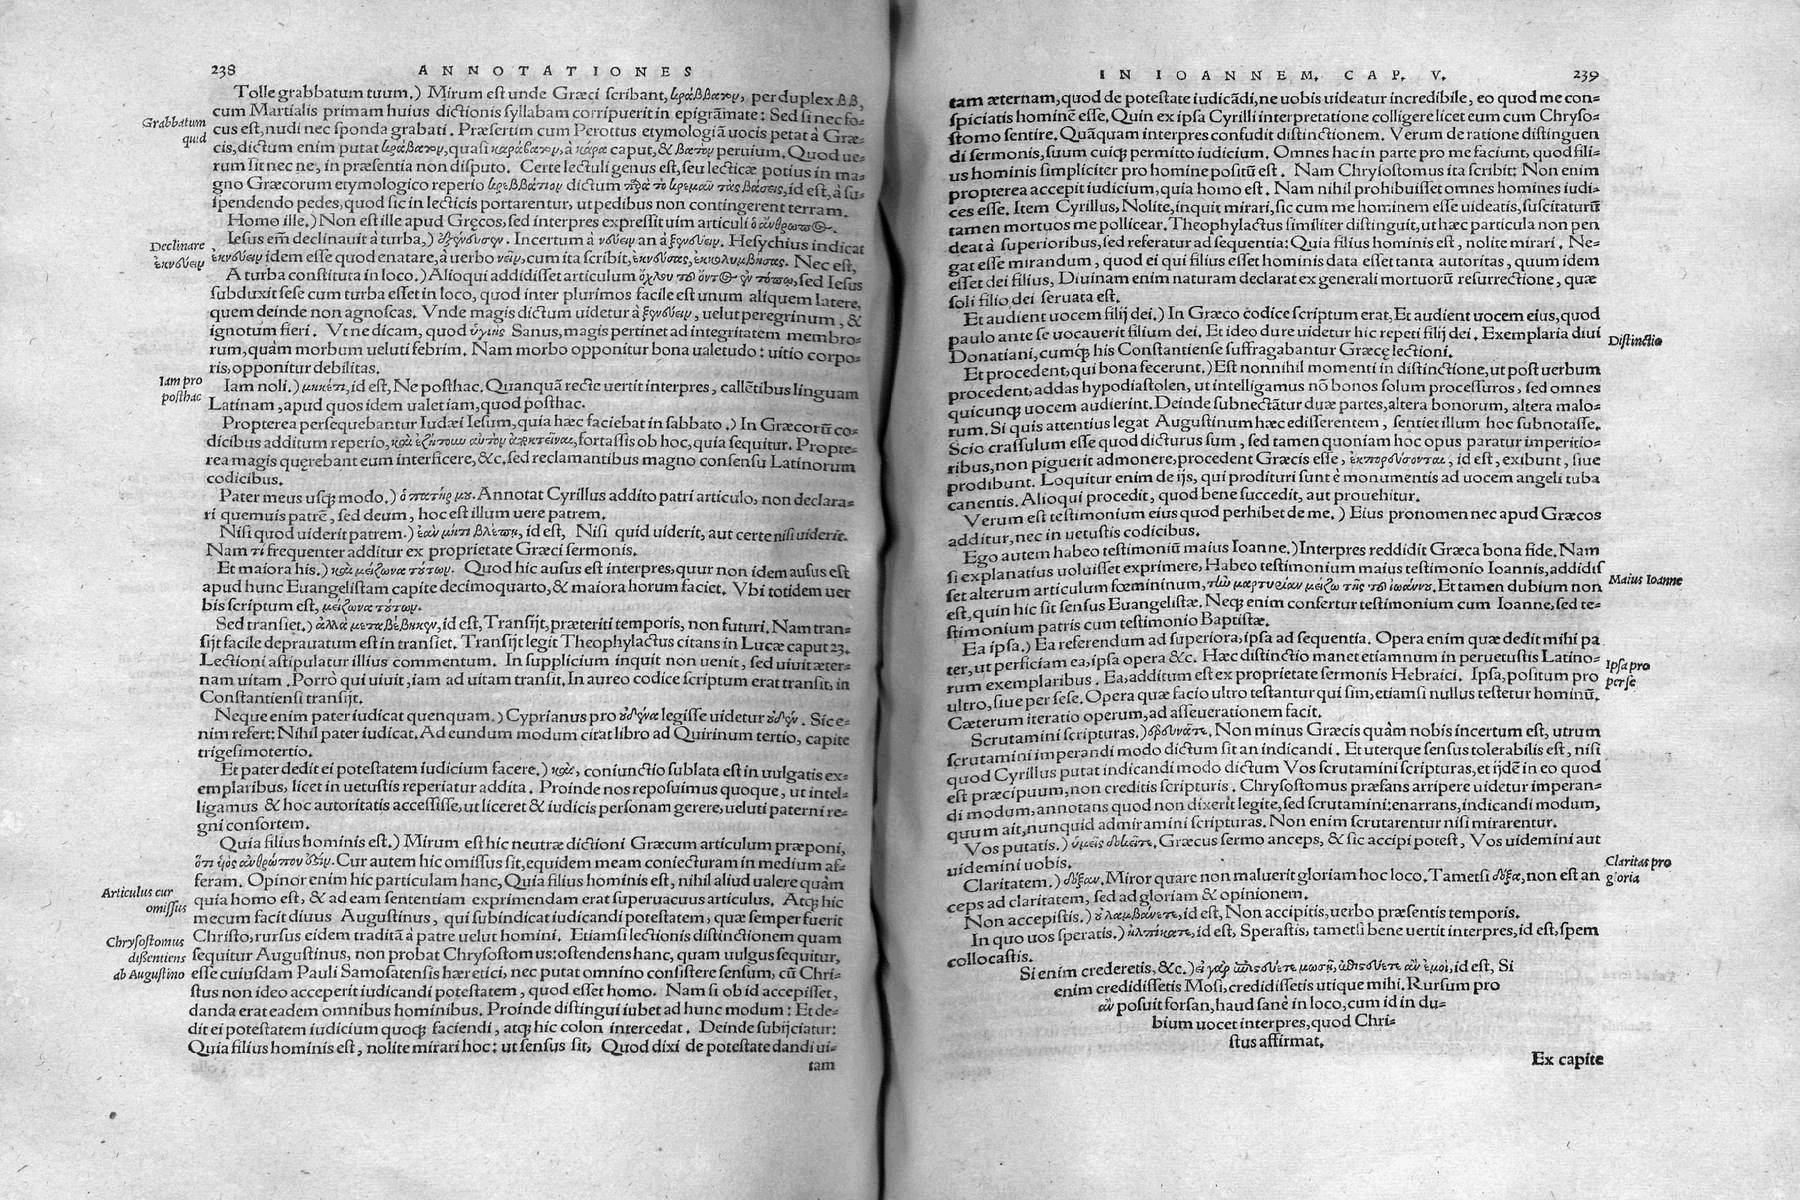 238 ANNOTATIONES
Tolle grabbatum tuum.) Mirum est unde Græci scribant, κράββατον, per duplex ββ,
cum Martialis primam huius dictionis syllabam corripuerit in epigrāmate: Sed si nec fo-
Grabbatum quid
cus est, nudi nec sponda grabati. Præsertim cum Perottus etymologiā uocis petat à Græ-
cis, dictum enim putat κράβατον, quasi καράβατον, à κάρα caput, & βατὸν peruium. Quod ue-
rum sit nec ne, in præsentia non disputo. Certe lectuli genus est, seu lecticæ potius in ma-
gno Græcorum etymologico reperio κρεββάτιον dictum παρὰ τὸ κρεμᾶν τὰς βάσεις, id est, à su-
spendendo pedes, quod sic in lecticis portarentur, ut pedibus non contingerent terram.
Homo ille.) Non est ille apud Gręcos, sed interpres expressit uim articuli ὁ ἄνθρωπος.
Declinare ἐκνεύειν
Iesus em̄ declinauit à turba.) ἐξένευσεν. Incertum à νεύειν an à ξενεύειν. Hesychius indicat
ἐκνεύειν idem esse quod enatare, à uerbo νεῖν, cum ita scribit, ἐκνεύσας, ἐκκολυμβήσας. Nec est,
A turba constituta in loco.) Alioqui addidisset articulum ὄχλου τοῦ ὄντος ἐν τόπῳ, sed Iesus
subduxit sese cum turba esset in loco, quod inter plurimos facile est unum aliquem latere,
quem deinde non agnoscas. Vnde magis dictum uidetur à ξενεύειν, uelut peregrinum, &
ignotum fieri. Vt ne dicam, quod ὑγιής Sanus, magis pertinet ad integritatem membro-
rum, quàm morbum ueluti febrim. Nam morbo opponitur bona ualetudo: uitio corpo-
ris, opponitur debilitas.
Iam pro posthac
Iam noli.) μηκέτι, id est, Ne posthac. Quanquā recte uertit interpres, callētibus linguam
Latinam, apud quos idem ualet iam, quod posthac.
Propterea persequebantur Iudæi Iesum, quia hæc faciebat in sabbato.) In Græcorū co-
dicibus additum reperio, καὶ ἐζήτουν αὐτὸν ἀποκτεῖναι, fortassis ob hoc, quia sequitur. Propte-
rea magis quęrebant eum interficere, &c. sed reclamantibus magno consensu Latinorum
codicibus.
Pater meus usq; modo.) ὁ πατήρ μου. Annotat Cyrillus addito patri articulo, non declara-
ri quemuis patrē, sed deum, hoc est illum uere patrem.
Nisi quod uiderit patrem.) ἐὰν μή τι βλέπῃ, id est, Nisi quid uiderit, aut certe nisi uiderit.
Nam τι frequenter additur ex proprietate Græci sermonis.
Et maiora his.) καὶ μείζονα τούτων. Quod hic ausus est interpres, quur non idem ausus est
apud hunc Euangelistam capite decimoquarto, & maiora horum faciet. Vbi totidem uer
bis scriptum est, μείζονα τούτων.
Sed transiet.) ἀλλὰ μεταβέβηκεν, id est, Transijt, præteriti temporis, non futuri. Nam tran-
sijt facile deprauatum est in transiet. Transijt legit Theophylactus citans in Lucæ caput 23.
Lectioni astipulatur illius commentum. In supplicium inquit non uenit, sed uiuit æter-
nam uitam. Porrò qui uiuit, iam ad uitam transit. In aureo codice scriptum erat transit, in
Constantiensi transijt.
Neque enim pater iudicat quenquam.) Cyprianus pro οὐδένα legisse uidetur οὐδέν. Sic e-
nim refert: Nihil pater iudicat. Ad eundum modum citat libro ad Quirinum tertio, capite
trigesimotertio.
Et pater dedit ei potestatem iudicium facere.) καὶ, coniunctio sublata est in uulgatis ex-
emplaribus, licet in uetustis reperiatur addita. Proinde nos reposuimus quoque, ut intel-
ligamus & hoc autoritatis accessisse, ut liceret & iudicis personam gerere, ueluti paterni re-
gni consortem.
Quia filius hominis est.) Mirum est hic neutræ dictioni Græcum articulum præponi,
ὅτι ὑιὸς ἀνθρώπου ὅξιν. Cur autem hic omissus sit, equidem meam coniecturam in medium af-
feram. Opinor enim hic particulam hanc, Quia filius hominis est, nihil aliud ualere quàm
Articulus cur omissus
quia homo est, & ad eam sententiam exprimendam erat superuacuus articulus. Atq; hic
mecum facit diuus Augustinus, qui subindicat iudicandi potestatem, quæ semper fuerit
Chrysostomus dissentiens ab Augustino
Christo, rursus eidem traditā à patre uelut homini. Etiamsi lectionis distinctionem quam
sequitur Augustinus, non probat Chrysostomus: ostendens hanc, quam uulgus sequitur,
esse cuiusdam Pauli Samosatensis hæretici, nec putat omnino consistere sensum, cū Chri-
stus non ideo acceperit iudicandi potestatem, quod esset homo. Nam si ob id accepisset,
danda erat eadem omnibus hominibus. Proinde distingui iubet ad hunc modum: Et de-
dit ei potestatem iudicium quoq; faciendi, atq; hic colon intercedat. Deinde subijciatur:
Quia filius hominis est, nolite mirari hoc: ut sensus sit, Quod dixi de potestate dandi ui-
tam
IN IOANNEM. CAP. V. 239
tam æternam, quod de potestate iudicādi, ne uobis uideatur incredibile, eo quod me con-
spiciatis hominē esse, Quin ex ipsa Cyrilli interpretatione colligere licet eum cum Chryso-
stomo sentire. Quāquam interpres confudit distinctionem. Verum de ratione distinguen
di sermonis, suum cuiq; permitto iudicium. Omnes hac in parte pro me faciunt, quod fili-
us hominis simpliciter pro homine positū est. Nam Chrysostomus ita scribit: Non enim
propterea accepit iudicium, quia homo est. Nam nihil prohibuisset omnes homines iudi-
ces esse. Item Cyrillus, Nolite, inquit mirari, sic cum me hominem esse uideatis, suscitaturū
tamen mortuos me pollicear. Theophylactus similiter distinguit, ut hæc particula non pen
deat à superioribus, sed referatur ad sequentia: Quia filius hominis est, nolite mirari. Ne-
gat esse mirandum, quod ei qui filius esset hominis data esset tanta autoritas, quum idem
esset dei filius, Diuinam enim naturam declarat ex generali mortuorū resurrectione, quæ
soli filio dei seruata est.
Et audient uocem filij dei.) In Græco codice scriptum erat, Et audient uocem eius, quod
paulo ante se uocauerit filium dei. Et ideo dure uidetur hic repeti filij dei. Exemplaria diui
Distinctio
Donatiani, cumq́; his Constantiense suffragabantur Græcę lectioni.
Et procedent, qui bona fecerunt.) Est nonnihil momenti in distinctione, ut post uerbum
procedent, addas hypodiastolen, ut intelligamus nō bonos solum processuros, sed omnes
quicunq; uocem audierint. Deinde subnectātur duæ partes, altera bonorum, altera malo-
rum. Si quis attentius legat Augustinum hæc edisserentem, sentiet illum hoc subnotasse.
Scio crassulum esse quod dicturus sum, sed tamen quoniam hoc opus paratur imperitio-
ribus, non piguerit admonere, procedent Græcis esse, ἐκπορεύσονται, id est, exibunt, siue
prodibunt. Loquitur enim de ijs, qui prodituri sunt è monumentis ad uocem angeli tuba
canentis. Alioqui procedit, quod bene succedit, aut prouehitur.
Verum est testimonium eius quod perhibet de me.) Eius pronomen nec apud Græcos
additur, nec in uetustis codicibus.
Ego autem habeo testimoniū maius Ioanne.) Interpres reddidit Græca bona fide. Nam
si explanatius uoluisset exprimere, Habeo testimonium maius testimonio Ioannis, addidis
Maius Ioanne
set alterum articulum fœmininum, τὴν μαρτυρίαν μείζω τῆς τοῦ ἰωάννου. Et tamen dubium non
est, quin hic sit sensus Euangelistæ. Neq; enim confertur testimonium cum Ioanne, sed te-
stimonium patris cum testimonio Baptistæ.
Ea ipsa.) Ea referendum ad superiora, ipsa ad sequentia. Opera enim quæ dedit mihi pa
ter, ut perficiam ea, ipsa opera &c. Hæc distinctio manet etiamnum in peruetustis Latino-
Ipsa pro per se
rum exemplaribus. Ea, additum est ex proprietate sermonis Hebraici. Ipsa, positum pro
ultro, siue per sese. Opera quæ facio ultro testantur qui sim, etiamsi nullus testetur hominū.
Cæterum iteratio operum, ad asseuerationem facit.
Scrutamini scripturas.) ἐρευνᾶτε. Non minus Græcis quàm nobis incertum est, utrum
scrutamini imperandi modo dictum sit an indicandi. Et uterque sensus tolerabilis est, nisi
quod Cyrillus putat indicandi modo dictum Vos scrutamini scripturas, et ijdē in eo quod
est præcipuum, non creditis scripturis. Chrysostomus præfans arripere uidetur imperan-
di modum, annotans quod non dixerit legite, sed scrutamini: enarrans, indicandi modum,
quum ait, nunquid admiramini scripturas. Non enim scrutarentur nisi mirarentur.
Vos putatis.) ὑμεῖς δοκεῖτε. Græcus sermo anceps, & sic accipi potest, Vos uidemini aut
uidemini uobis.
Claritas pro gloria
Claritatem.) δόξαν. Miror quare non maluerit gloriam hoc loco. Tametsi δόξα, non est an
ceps ad claritatem, sed ad gloriam & opinionem.
Non accepistis.) οὐ λαμβάνετε, id est, Non accipitis, uerbo præsentis temporis.
In quo uos speratis.) ἠλπίκατε, id est, Sperastis, tametsi bene uertit interpres, id est, spem
collocastis.
Si enim crederetis, &c.) εἰ γὰρ ἐπιστεύετε μωσῇ, ἐπιστεύετε ἂν ἐμοὶ, id est, Si
enim credidissetis Mosi, credidissetis utique mihi. Rursum pro
ἂν posuit forsan, haud sanè in loco, cum id in du-
bium uocet interpres, quod Chri-
stus affirmat.
Ex capite